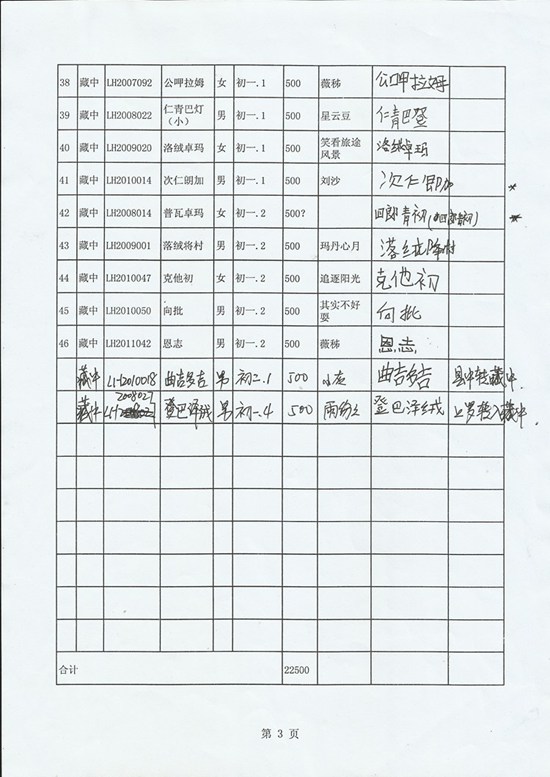 38 藏中 LH2007092 公呷拉姆 女 初一.1 500 薇秭 公呷拉姆
39 藏中 LH2008022 仁青巴灯（小） 男 初一.1 500 星云豆 仁青巴登
40 藏中 LH2009020 洛绒卓玛 女 初一.1 500 笑看旅途风景 洛绒卓玛
41 藏中 LH2010014 次仁朗加 男 初一.1 500 刘沙 次仁郎加
42 藏中 LH2008014 普瓦卓玛 女 初一.2 500? 四郎青初
43 藏中 LH2009001 落绒将村 男 初一.2 500 玛丹心月 落绒降村
44 藏中 LH2010047 克他初 女 初一.2 500 追逐阳光 克他初
45 藏中 LH2010050 向批 男 初一.2 500 其实不好耍 向批
46 藏中 LH2011042 恩志 男 初一.2 500 薇秭 恩志
藏中 LH2010018 曲吉多吉 男 初二.1 500 曲吉多吉 县中转藏中.
藏中 LH 2008027 登巴泽绒 男 初一.4 500 登巴泽绒 转入藏中.
合计 22500
第 3 页